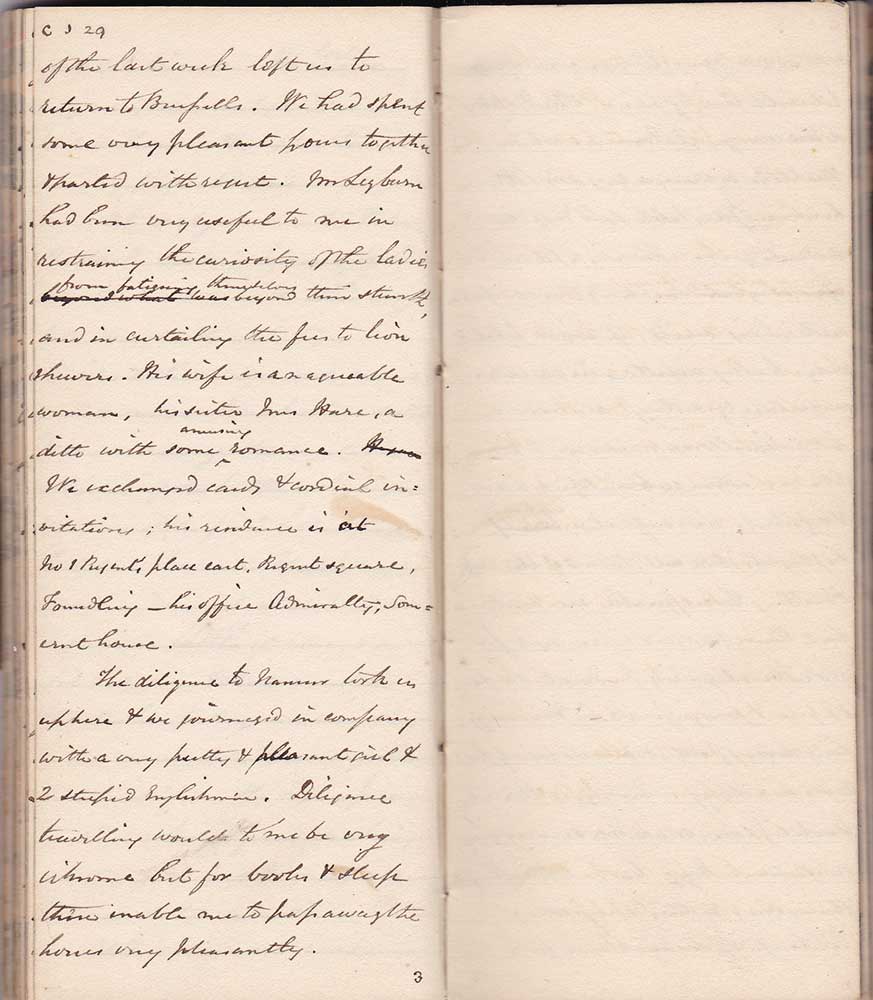 C J 29
of the last week left us to
return to Brussells. We had spent
some very pleasant hours together
& parted with regret. Mr Legburn
had been very useful to me in
restraining the curiosity of the ladies
from fatiguing themselves
beyond what was beyond their strength,
and in curtailing the fees to lion
shewers. His wife is an agreeable
woman, his sister Mrs Hare, a
amusing
ditto with some romance.
We exchanged cards & cordial in=
vitations; his residence is at
No 1 Regent's place east, Regent square,
Foundling – his office Admiralty, Som=
erset house.
The diligence to Namur took us
up here & we journeyed in company
with a very pretty & pleasant girl &
2 stupid Englishmen. Diligence
travelling would to me be very
irksome but for books & sleep
these inable me to pass away the
hours very pleasantly.
3